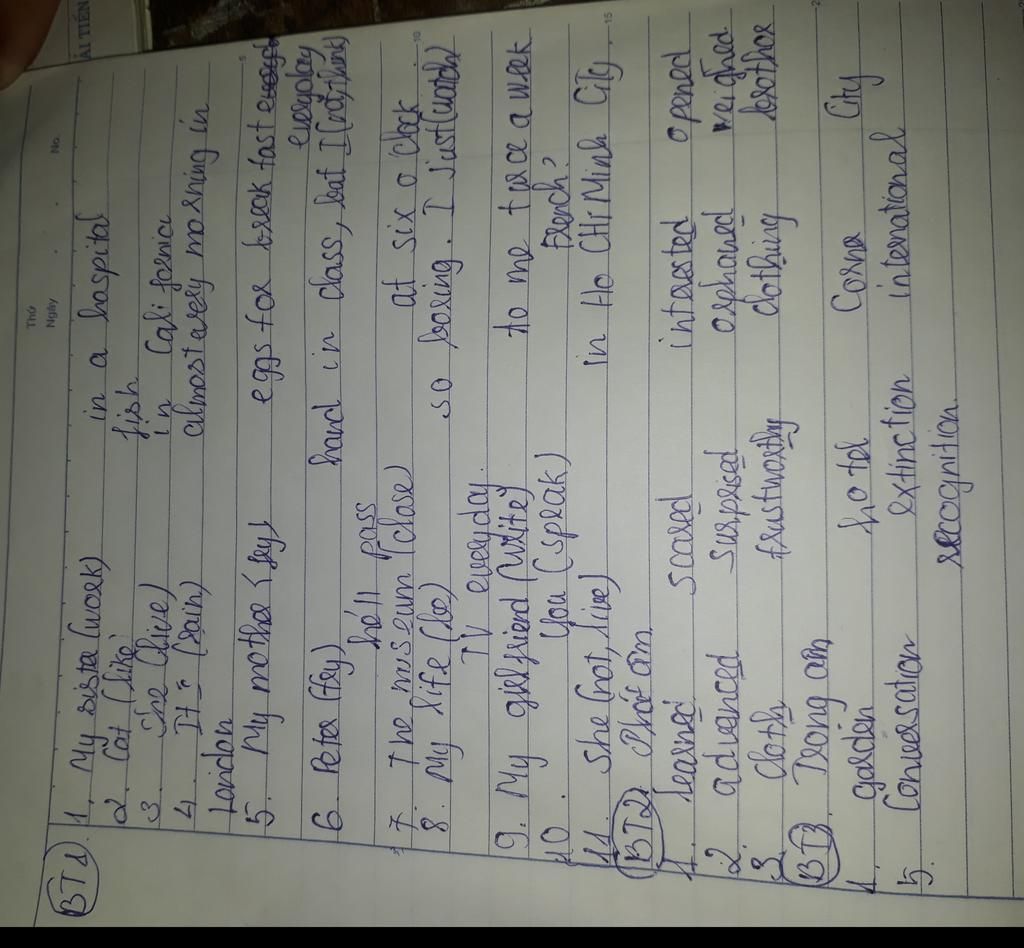 ẢI TIẾN
Thứ
Ngày
No.
BT1
1. My sister (work) in a hospital
2. Cat (like) fish
3. She (live) in California
4. It (rain) almost every morning in
London
5. My mother (fry) eggs for breakfast
everyday
6. Peter (try) hand in class, but I (not, think)
he'll pass
7. The museum (close) at six o'clock
8. My life (be) so boring. I just (watch)
TV everyday.
9. My girlfriend (write) to me twice a week
10. You (speak) French?
11. She (not, live) in Ho Chi Minh City.
BT2. Phát âm
1. learned scared interested opened
2. advanced surprised orphaned weighed
3. cloth trustworthy clothing brother
BT3 Trọng âm
1. garden hotel Corner City
5. Conversation extinction international
recognition.
5
10
15